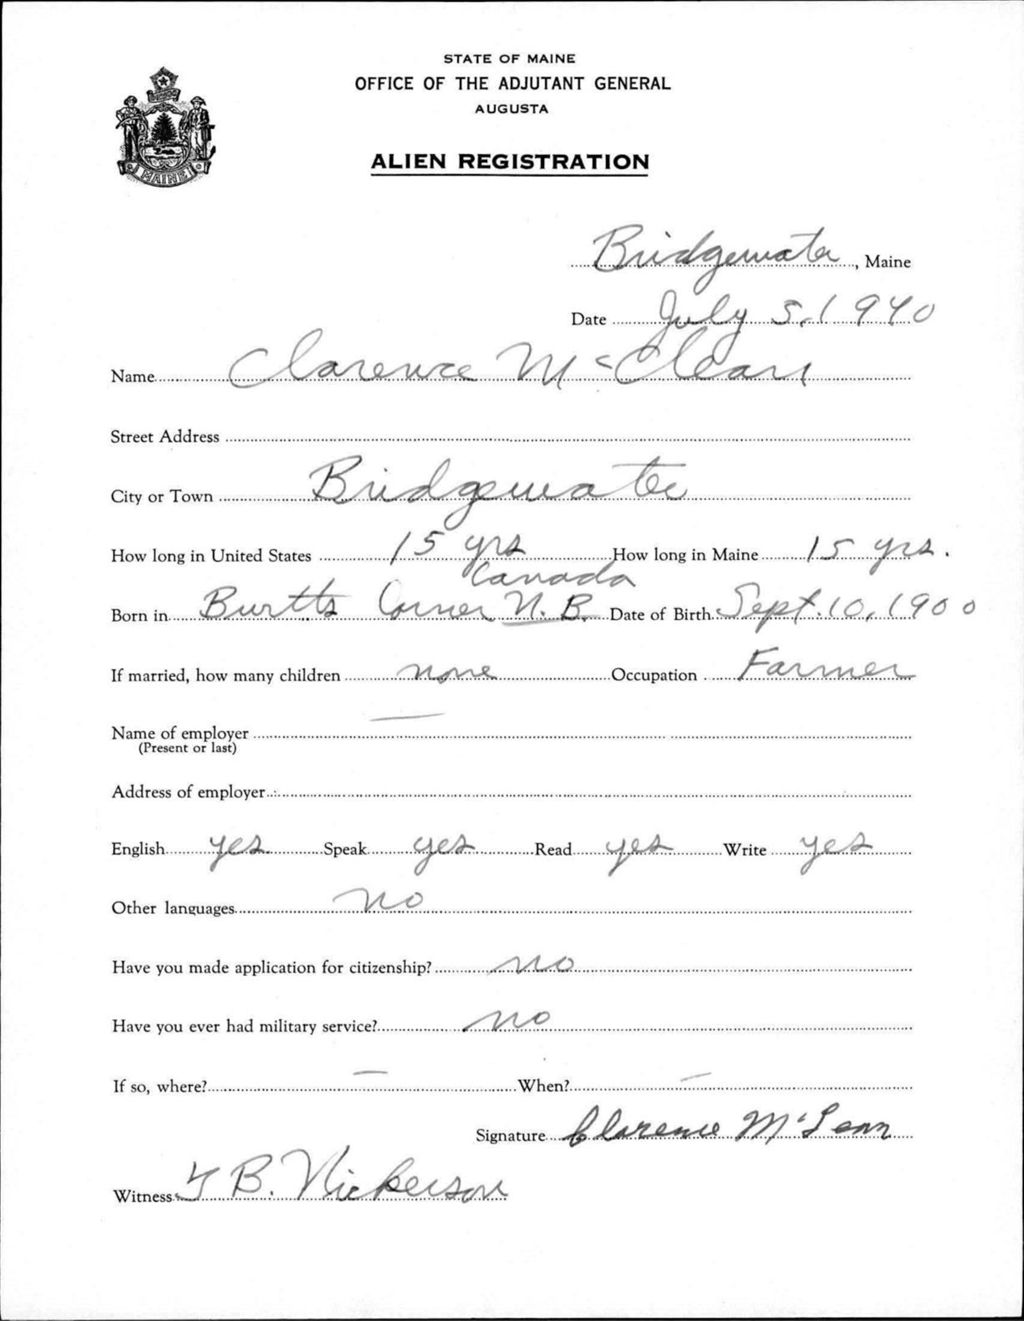 STATE OF MAINE
OFFICE OF THE ADJUTANT GENERAL
AUGUSTA
ALIEN REGISTRATION
MAINE
Bridgewater, Maine
Date July 5, 1940
Name Clarence McClean
Street Address
City or Town Bridgewater
How long in United States 15 yrs How long in Maine 15 yrs.
Canada
Born in Burtts Corner N.B. Date of Birth Sept. 10, 1900
If married, how many children none Occupation Farmer
Name of employer —
(Present or last)
Address of employer
English yes Speak yes Read yes Write yes
Other languages no
Have you made application for citizenship? no
Have you ever had military service? no
If so, where? — When? —
Signature Clarence McLean
Witness B. Nickerson